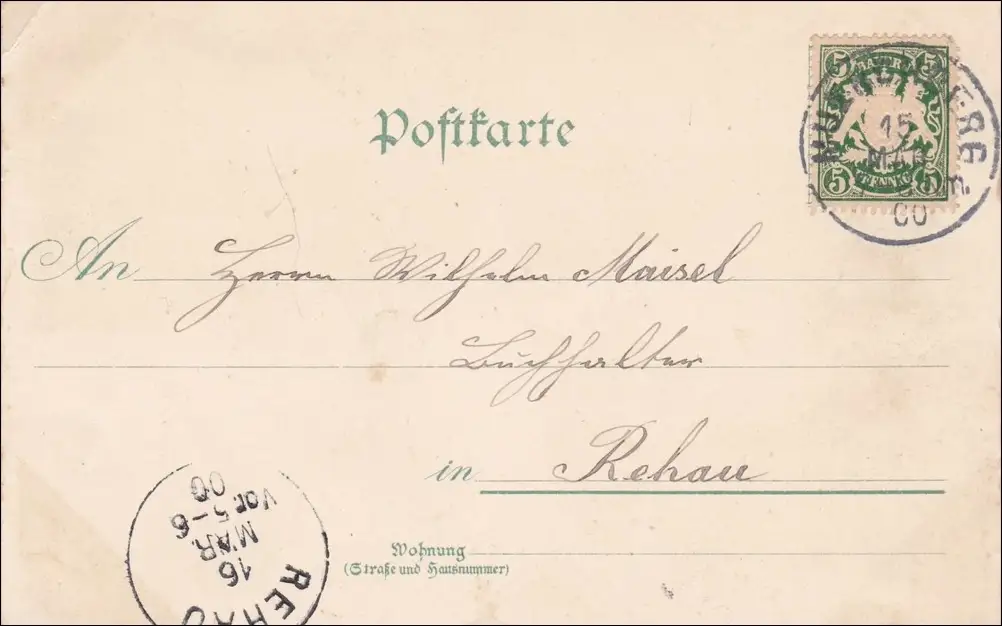 Postkarte
BAYERN
5 5
5 5
PFENNIG
15
MAR
00
An Herrn Wilhelm Maisel
Buchhalter
in Rehau
Wohnung
(Straße und Hausnummer)
REHAU
16
MAR.
Vor 5-6
00